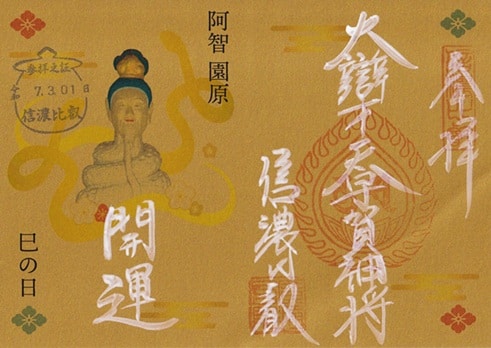 奉拝
大辯才天宇賀神将
信濃比叡
阿智 園原
開運
参拝之証
7.3.01日
信濃比叡
巳の日